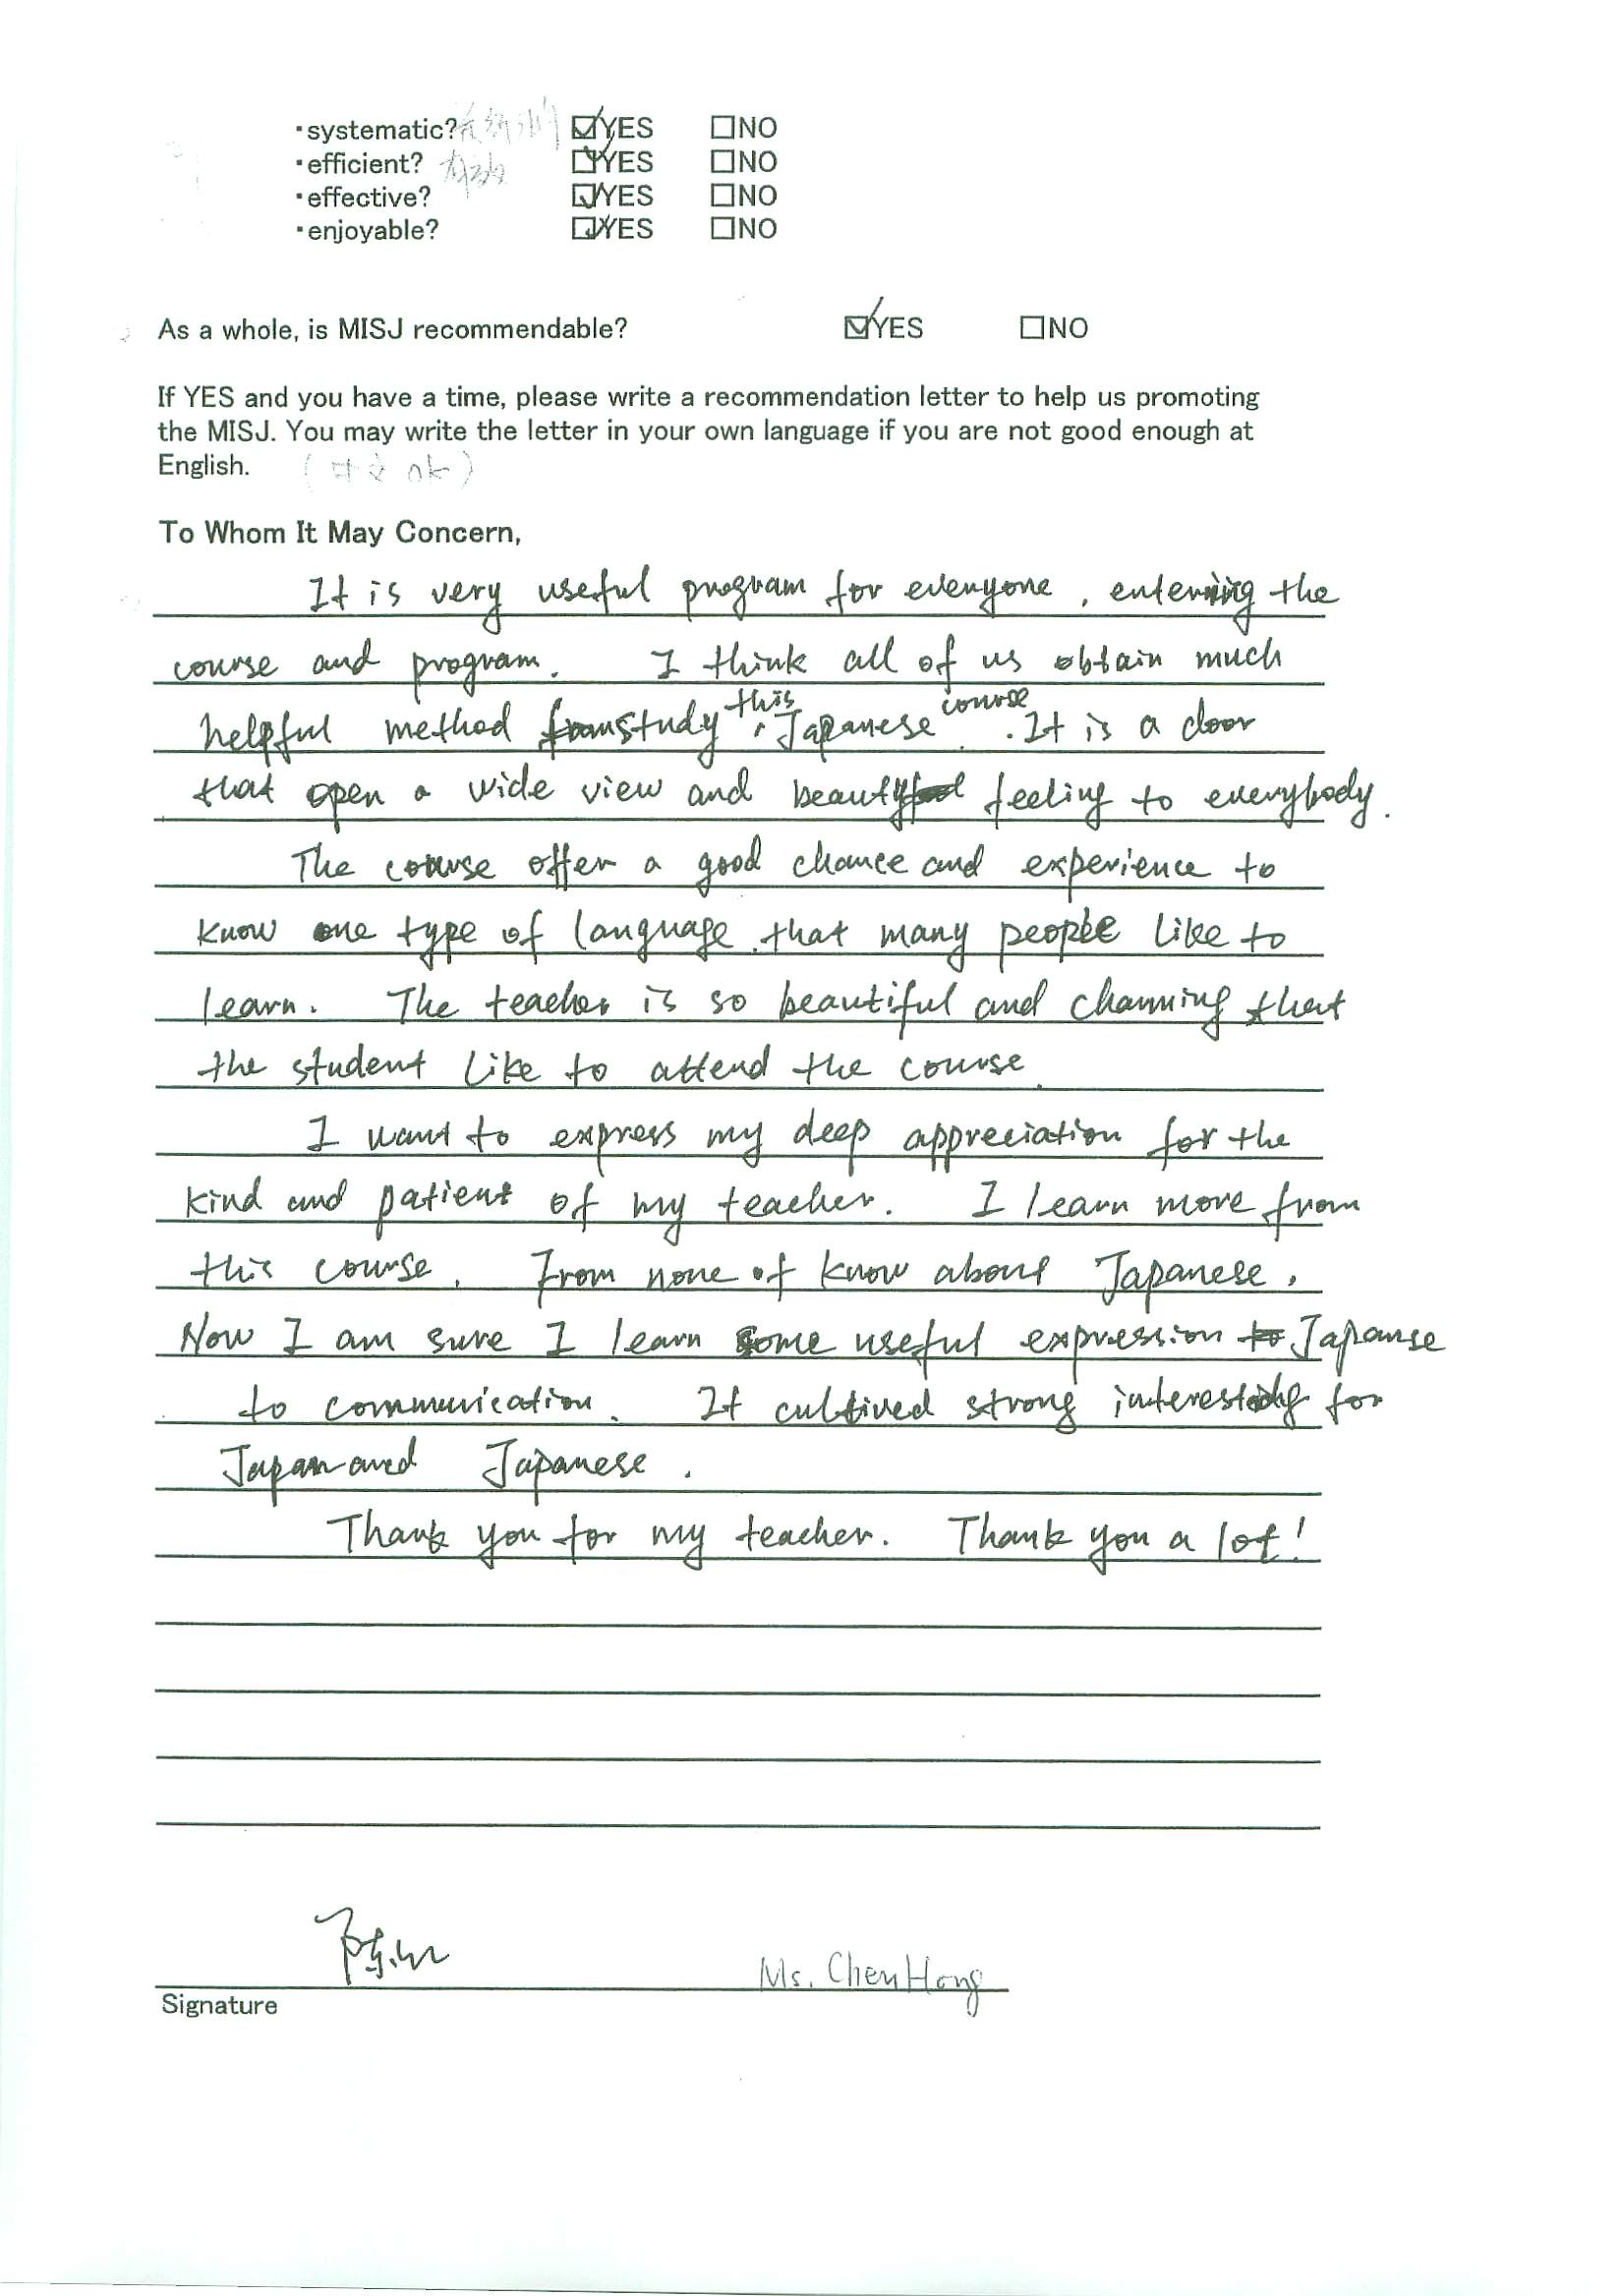 ・systematic? ☑YES ☐NO
・efficient? ☑YES ☐NO
・effective? ☑YES ☐NO
・enjoyable? ☑YES ☐NO
As a whole, is MISJ recommendable? ☑YES ☐NO
If YES and you have a time, please write a recommendation letter to help us promoting
the MISJ. You may write the letter in your own language if you are not good enough at
English. (中文 ok)
To Whom It May Concern,
It is very useful program for everyone, entering the
course and program. I think all of us obtain much
helpful method study this Japanese course. It is a door
that open a wide view and beauty feeling to everybody.
The course offer a good chance and experience to
know one type of language that many people like to
learn. The teacher is so beautiful and charming that
the student like to attend the course.
I want to express my deep appreciation for the
kind and patient of my teacher. I learn more from
this course. From none of know about Japanese.
Now I am sure I learn some useful expression Japanse
to communication. It cultived strong interesting for
Japan and Japanese.
Thank you for my teacher. Thank you a lot!
陈红 Ms. Chen Hong
Signature